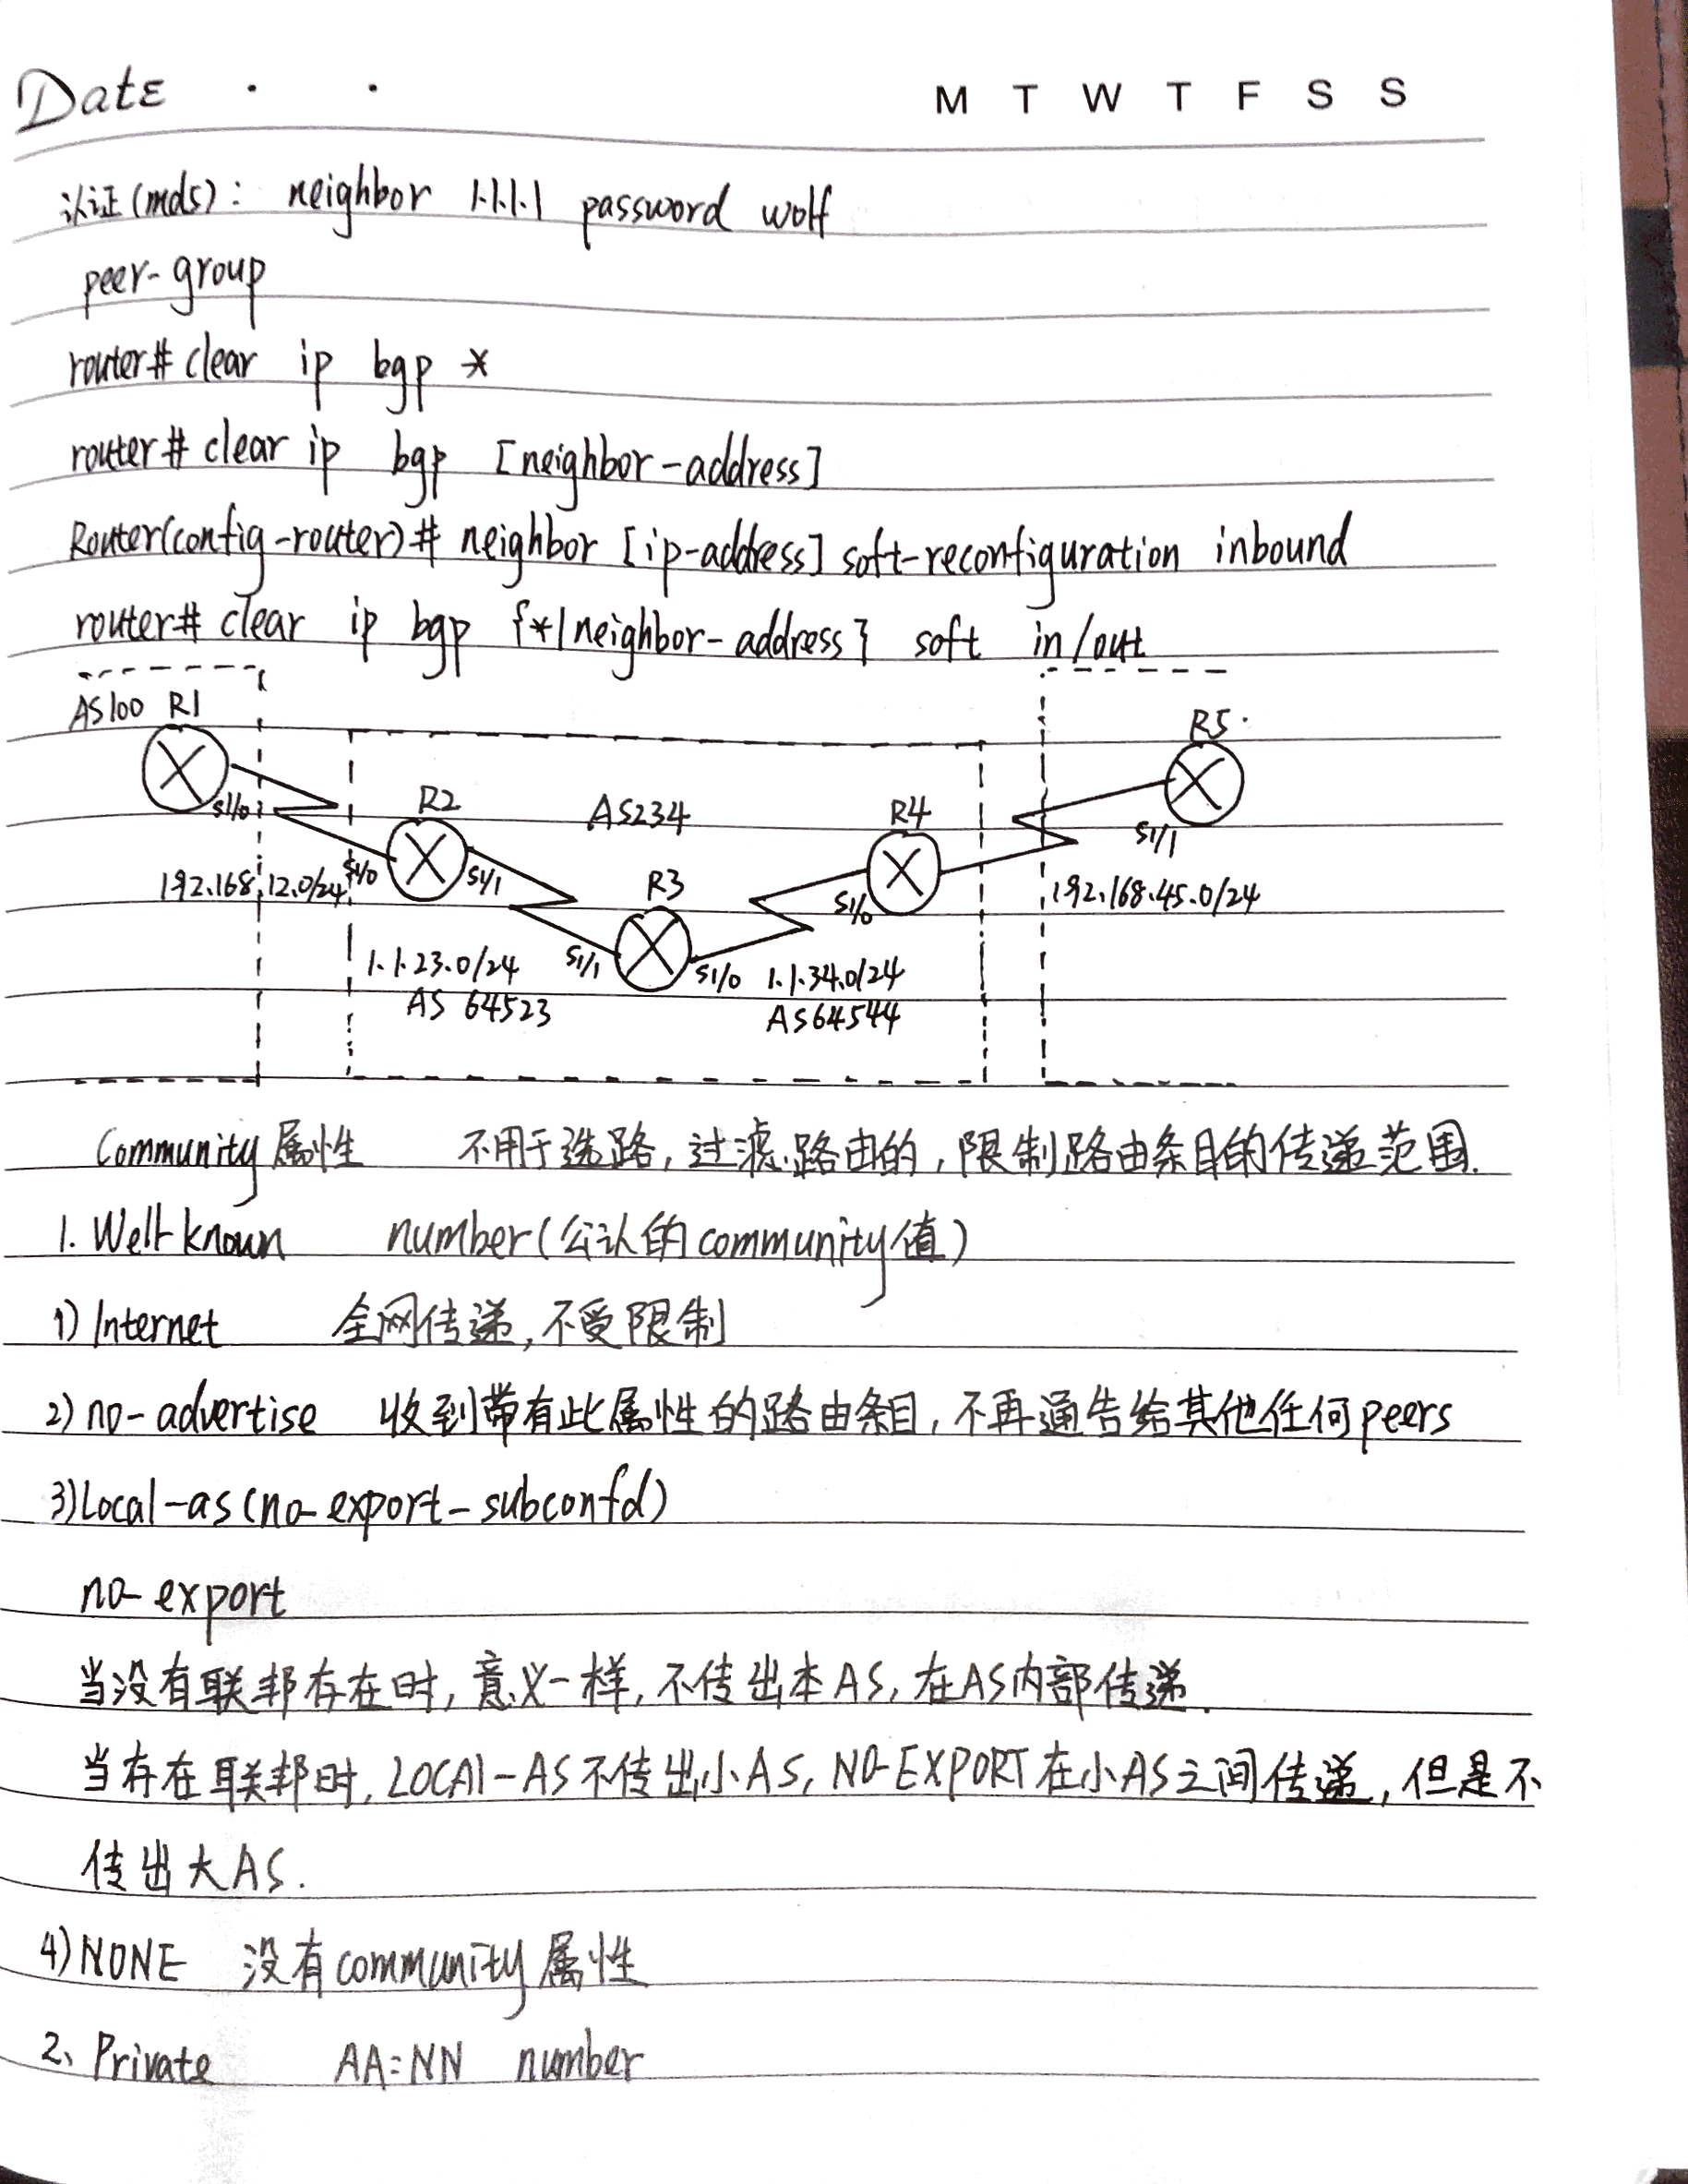 Date . .
M T W T F S S
认证(md5): neighbor 1.1.1.1 password wolf
peer-group
router# clear ip bgp *
router# clear ip bgp [neighbor-address]
Router(config-router)# neighbor [ip-address] soft-reconfiguration inbound
router# clear ip bgp {*|neighbor-address} soft in/out
AS100 R1
R5.
R2
AS234
R4
S1/0
S1/1
192.168.12.0/24
S1/0
S1/1
R3
S1/0
192.168.45.0/24
1.1.23.0/24
S1/1
S1/0
1.1.34.0/24
AS 64523
AS64544
Community属性 不用于选路,过滤路由的,限制路由条目的传递范围.
1. Well known number(公认的community值)
1) Internet 全网传递,不受限制
2) no-advertise 收到带有此属性的路由条目,不再通告给其他任何peers
3) Local-as(no-export-subconfd)
no-export
当没有联邦存在时,意义一样,不传出本AS,在AS内部传递.
当存在联邦时,LOCAl-AS不传出小AS,NO-EXPORT在小AS之间传递,但是不
传出大AS.
4) NONE 没有community属性
2、Private AA:NN number